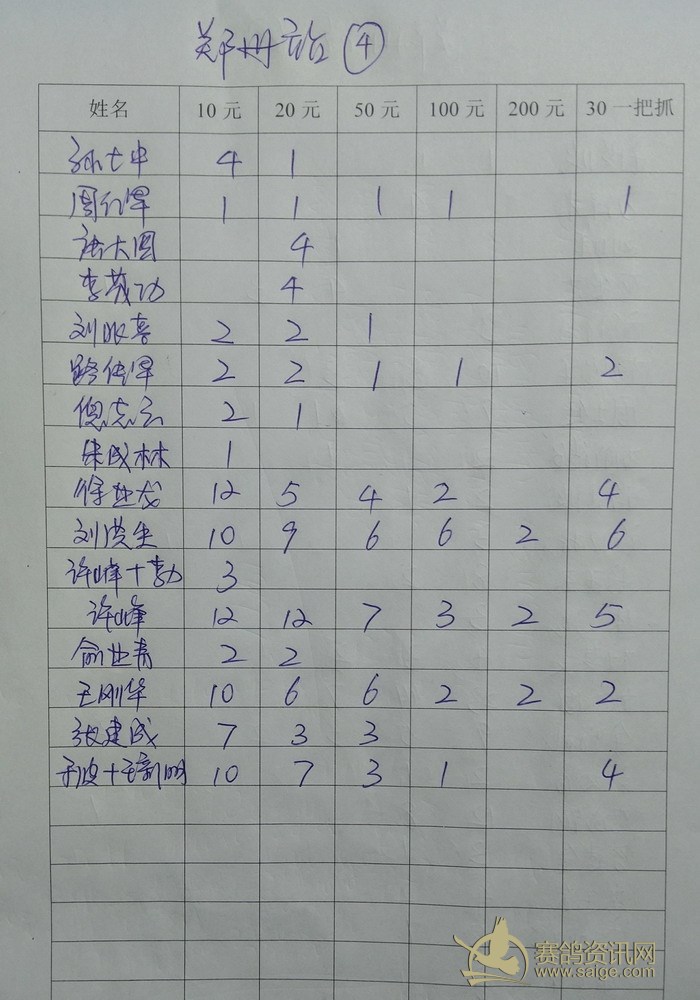 郑州站 ④
姓名 10元 20元 50元 100元 200元 30一把抓
孙士申 4 1
周红军 1 1 1 1 1
大圆 4
李茂功 4
刘永喜 2 2 1
路传军 2 2 1 1 2
倪志云 2 1
朱成林 1
徐业龙 12 5 4 2 4
刘洪生 10 9 6 6 2 6
许峰+勃 3
许峰 12 12 7 3 2 5
俞业青 2 2
王刚华 10 6 6 2 2 2
张建成 7 3 3
于波+王新明 10 7 3 1 4
赛鸽资讯网
www.saige.com